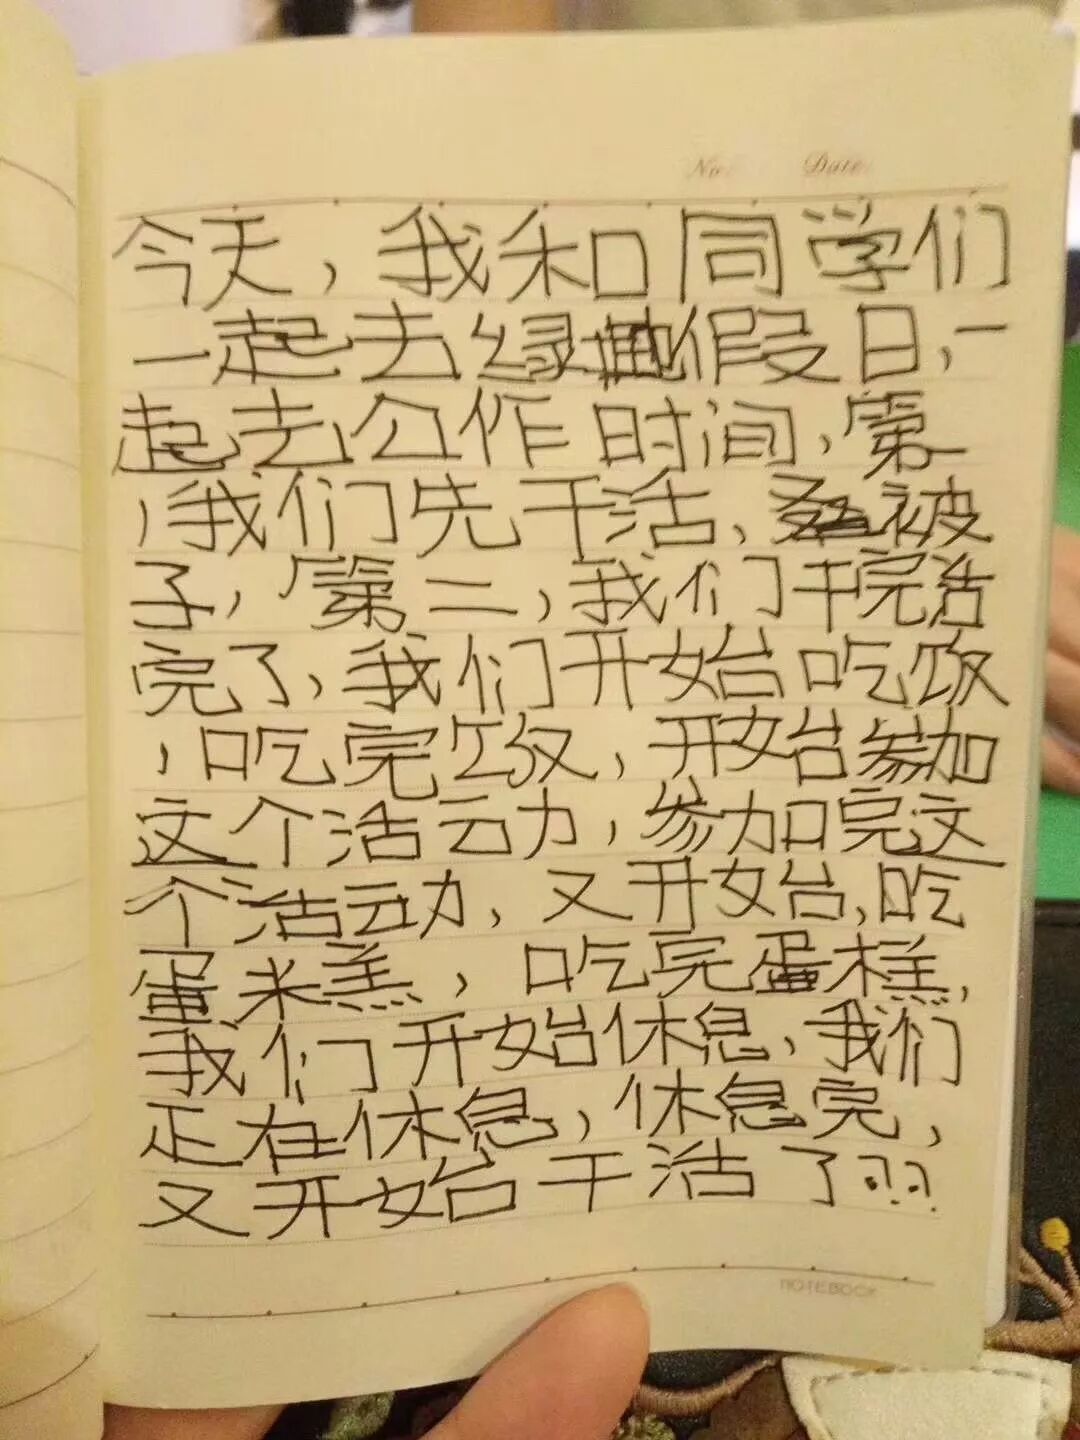 No.  Date
今天，我和同学们
一起去绿地假日，一
起去公作时间，第一
，我们先干活、叠被
子，第二，我们干完活
完了，我们开始吃饭
，吃完饭，开始参加
这个活动，参加完这
个活动，又开始，吃
蛋米糕，吃完蛋糕，
我们开始休息，我们
正在休息，休息完，
又开始干活了??
NOTEBOOK